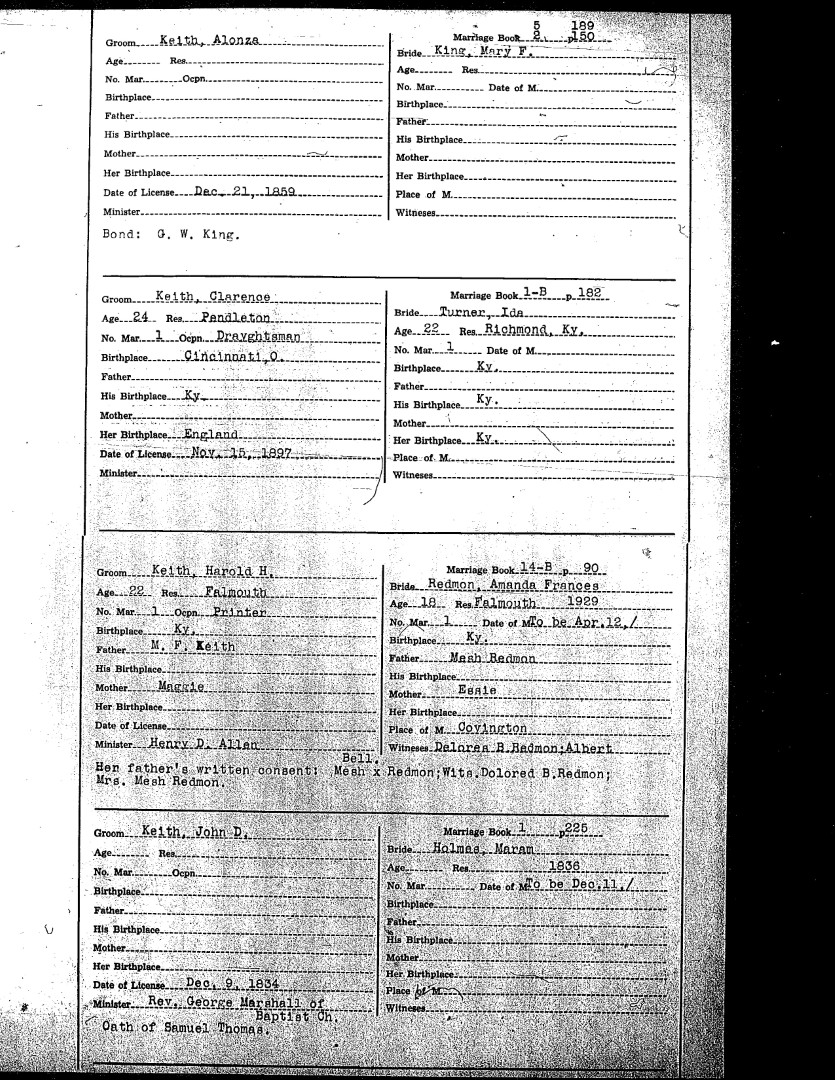 5 189
Groom Keith, Alonza Marriage Book 2 p150
Bride King, Mary F.
Age Res.
Age Res.
No. Mar. Ocpn.
No. Mar. Date of M.
Birthplace
Birthplace
Father
Father
His Birthplace
His Birthplace
Mother
Mother
Her Birthplace
Her Birthplace
Date of License Dec. 21, 1859
Place of M.
Minister
Witneses
Bond: G. W. King.
Groom Keith, Clarence Marriage Book 1-B p. 182
Bride Turner, Ida
Age 24 Res. Pendleton
Age 22 Res. Richmond, Ky.
No. Mar. 1 Ocpn. Drayghtsman
No. Mar. 1 Date of M.
Birthplace Cincinnati,O.
Birthplace Ky.
Father
Father
His Birthplace Ky.
His Birthplace Ky.
Mother
Mother
Her Birthplace England
Her Birthplace Ky.
Date of License Nov. 15, 1897
Place of M.
Minister
Witneses
Groom Keith, Harold H. Marriage Book 14-B p. 90
Bride Redmon, Amanda Frances
Age 22 Res. Falmouth
Age 18 Res. Falmouth 1929
No. Mar. 1 Ocpn. Printer
No. Mar. 1 Date of M. To be Apr.12,/
Birthplace Ky.
Birthplace Ky.
Father M. F. Keith
Father Mesh Redmon
His Birthplace
His Birthplace
Mother Maggie
Mother Essie
Her Birthplace
Her Birthplace
Date of License
Place of M. Covington
Minister Henry D. Allen
Witneses Delorea B.Redmon;Albert
Bell.
Her father's written consent: Mesh x Redmon;Wits.Dolored B.Redmon;
Mrs. Mesh Redmon.
Groom Keith, John D. Marriage Book 1 p225
Bride Holmes, Maram
Age Res.
Age Res. 1836
No. Mar. Ocpn.
No. Mar. Date of M. To be Dec.11,/
Birthplace
Birthplace
Father
Father
His Birthplace
His Birthplace
Mother
Mother
Her Birthplace
Her Birthplace
Date of License Dec. 9, 1834
Place of M.
Minister Rev. George Marshall of
Witneses
Baptist Ch.
Oath of Samuel Thomas.